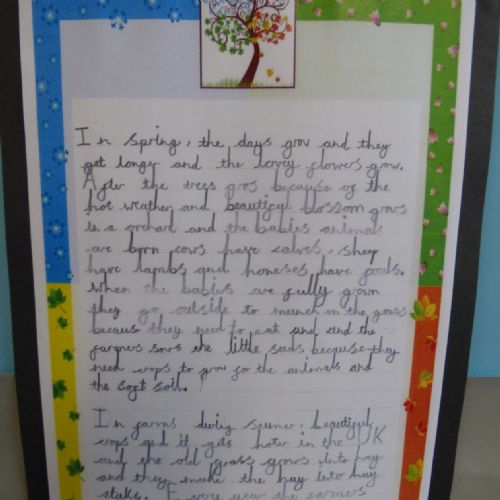 In spring, the days grov and they
get longer and the lovey flowers grow.
After the trees gros because of the
hot weather and beautiful blossom grows
in a orchard and the babies animals
are born cows have calves, sheep
have lambs and horeses have foals.
When the babies are fully grown
they go outside to munch on the grass
becaus they need to eat and and the
farmers sors the little seeds because they
need crops to grow for the animals and
the soft soil.
In farms during sumer, beautiful
crops and it gets hoter in the UK
and the old grass grows into hay
and they make the hay into hay
staks. year the farmers